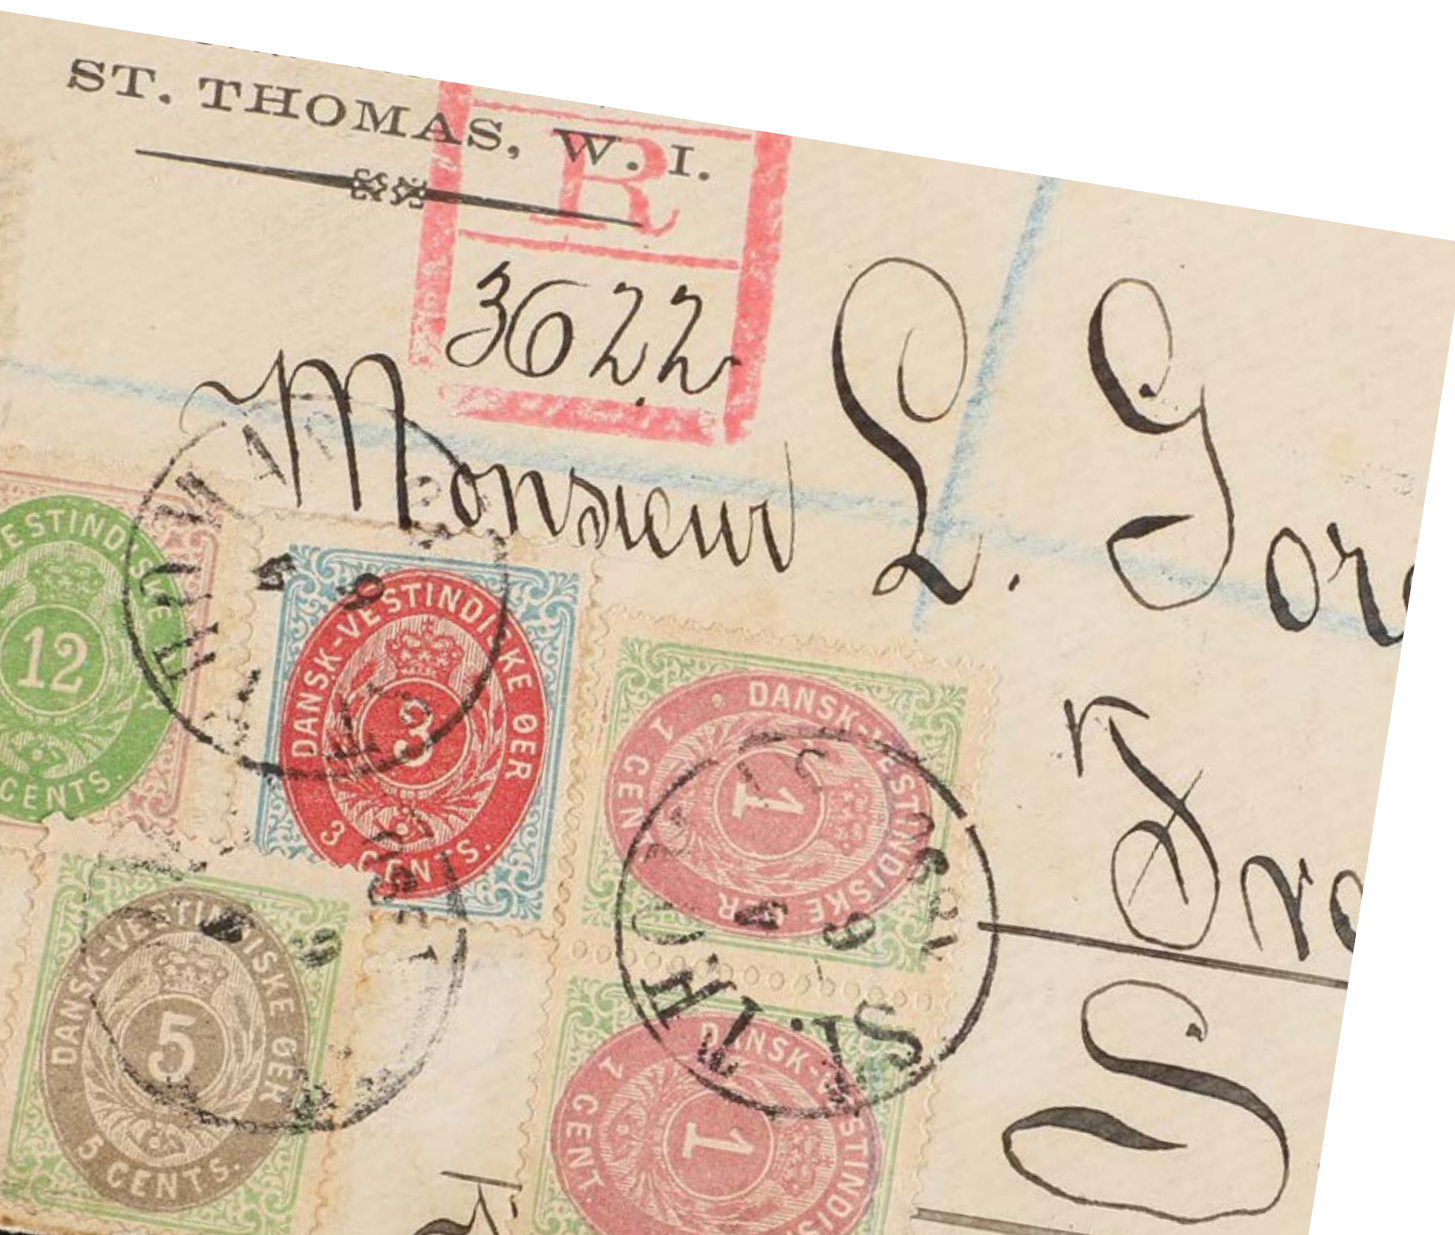 ST. THOMAS, W. I.
R
3622
Monsieur L.
VESTINDISKE
12
CENTS.
DANSK-VESTINDISKE ØER
3
3 CENTS.
DANSK-VESTINDISKE ØER
1
1 CENT
DANSK-VESTINDISKE ØER
5
5 CENTS.
DANSK-VESTINDIS
1
1 CENT.
ST. THOMAS
4 8
ST. THOMAS